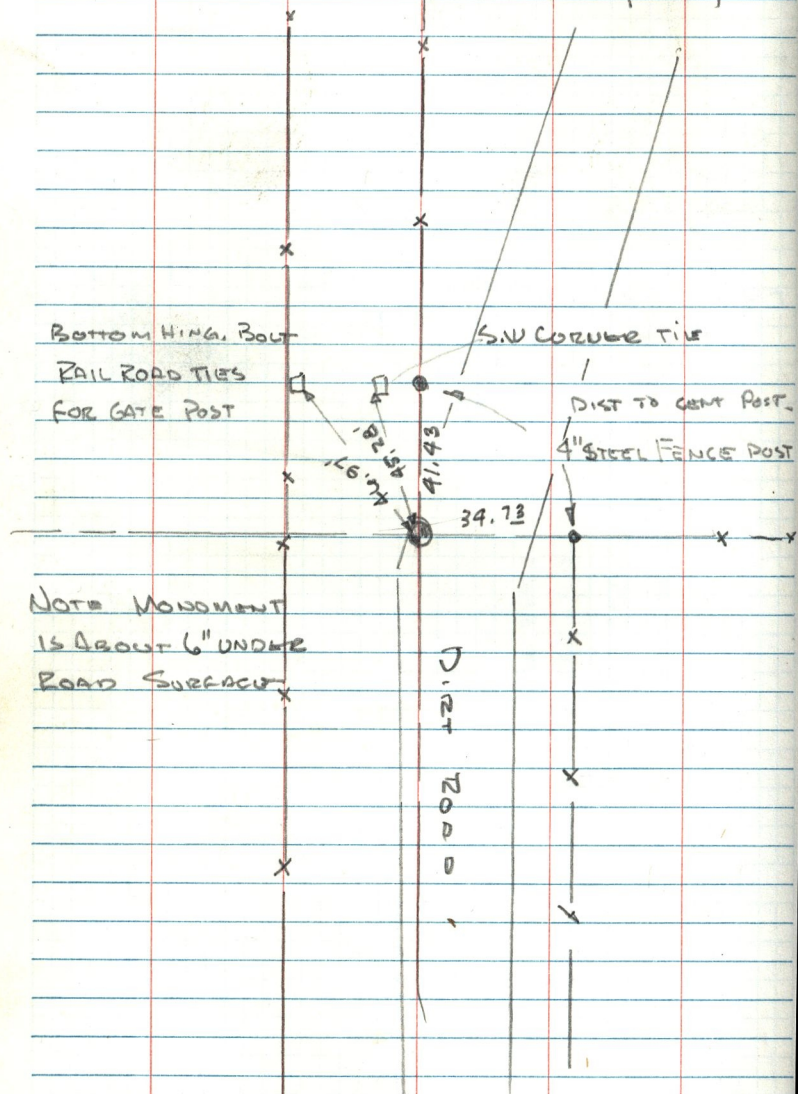 BOTTOM HING. BOLT
RAIL ROAD TIES
FOR GATE POST
S.W CORNER TIE
DIST TO CENT POST.
4" STEEL FENCE POST
45.28'
41.43
34.73
NOTE MONUMENT
IS ABOUT 6" UNDER
ROAD SURFACE
DIRT ROAD